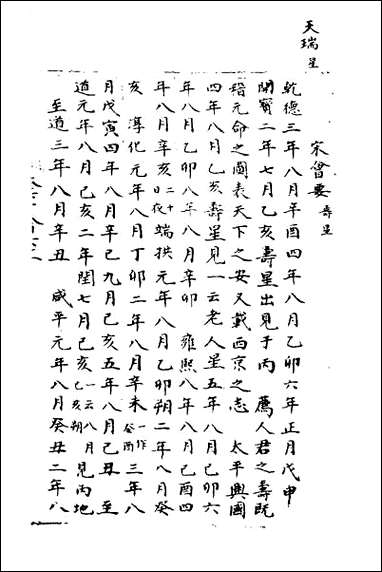 天瑞 星
宋會要 壽星
乾德三年八月辛酉四年八月乙卯六年正月戊申
開寶二年七月乙亥壽星出見于丙 薦人君之壽既
稽元命之圖表天下之安又載西京之志 太平興國
四年八月乙亥壽星見一云老人星五年八月己卯六
年八月乙卯八年八月辛卯 雍熙八年八月己酉四
年八月辛亥二十日夜端拱元年八月乙卯朔二年八月癸
亥 淳化元年八月丁卯二年八月辛未一作癸酉三年八
月戊寅四年八月辛巳九月己亥五年八月己丑 至
道元年八月己亥二年閏七月己亥一云八月乙亥朔見丙地
至道三年八月辛丑 咸平元年八月癸丑二年八